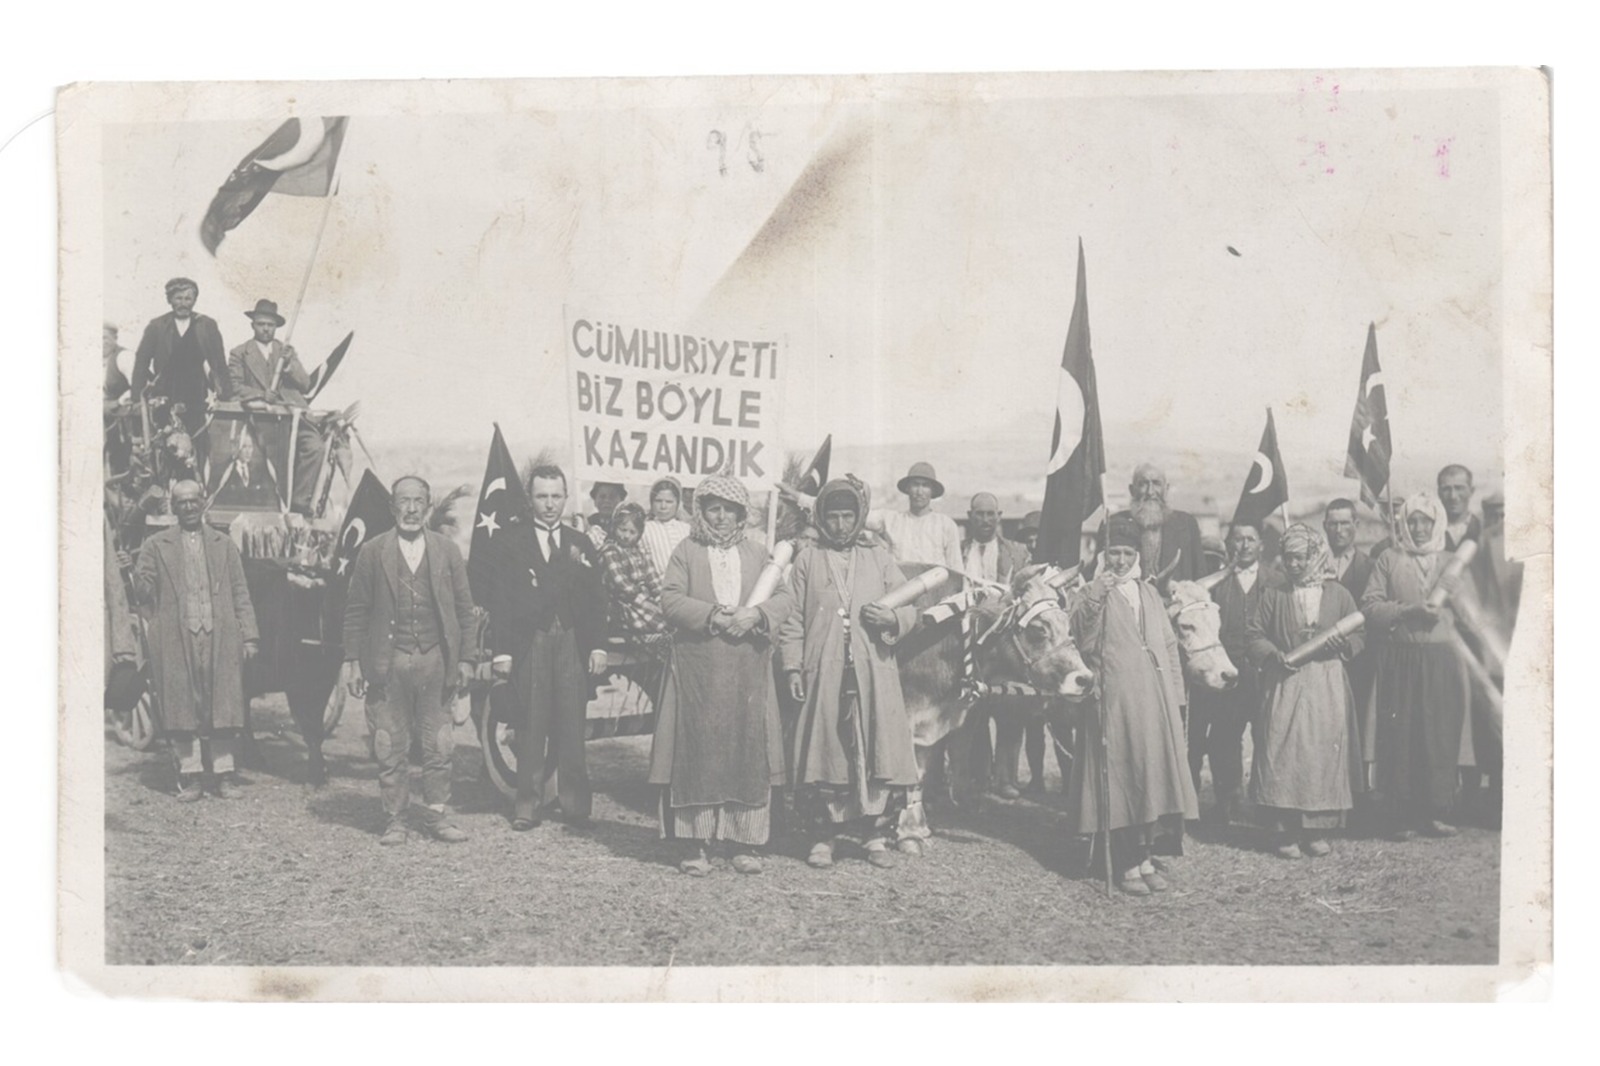 95
CÜMHURİYETİ
BİZ BÖYLE
KAZANDIK